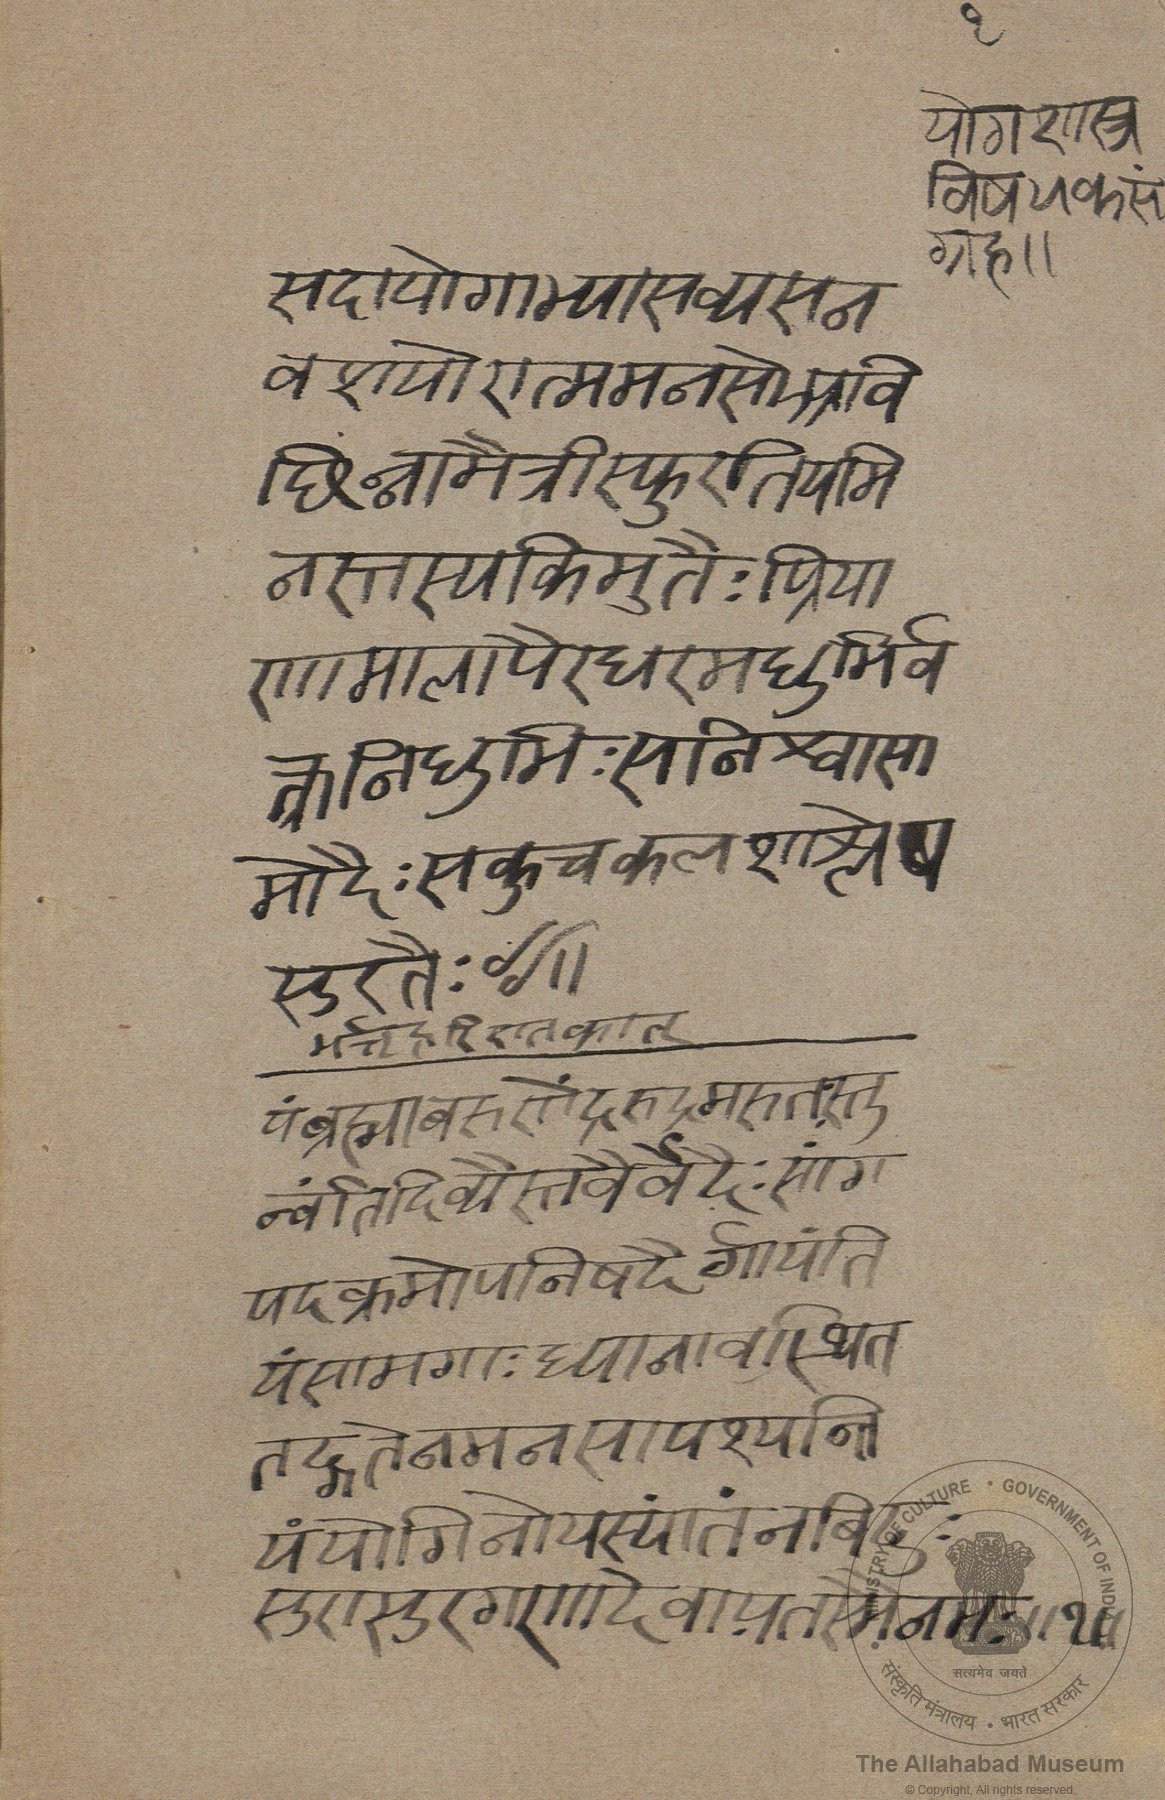 १
योगशास्त्र
विषयकसं
ग्रह॥
सदायोगाभ्यासव्यसन
वशयोरात्ममनसोरवि
छिन्नामैत्रीस्फुरतियमि
नस्तस्यकिमुतैःप्रिया
णामालापैरधरमधुभिर्व
क्त्रानिधुभिःसनिश्वासा
मोदैःसकुचकलशाश्लेष
सुरतैः ॥
भर्तृहरिशतकात्
यंब्रह्मावरुणेंद्ररुद्रमरुतःस्तु
र्न्वंतिदिव्यैस्तवैर्वेदैःसांग
पदक्रमोपनिषदैर्गायंति
यंसामगाःध्यानावस्थित
तद्गतेनमनसापश्यन्ति
यंयोगिनोयस्यांतंनविदुः
सुरासुरगणादेवायतस्मैनमः॥१॥
MINISTRY OF CULTURE • GOVERNMENT OF INDIA
सत्यमेव जयते
संस्कृति मंत्रालय • भारत सरकार
The Allahabad Museum
© Copyright, All rights reserved.